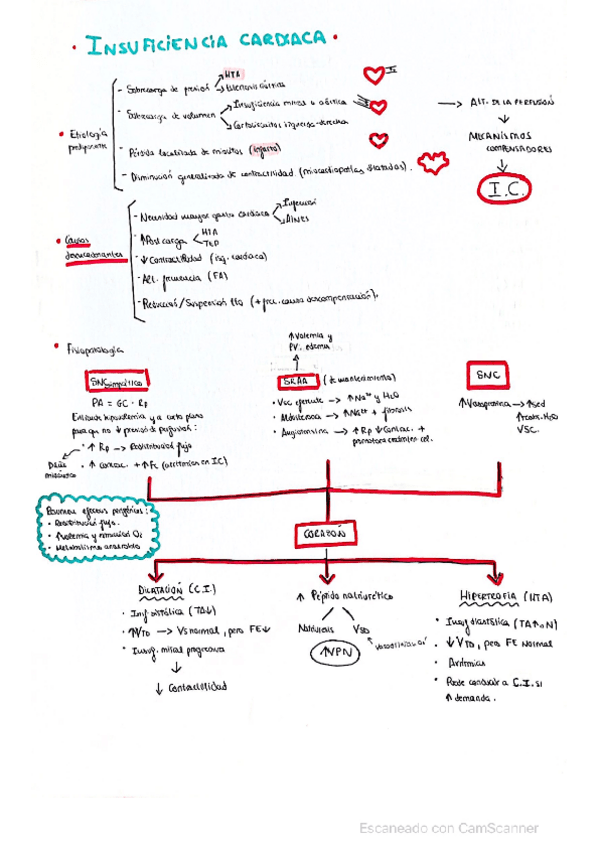 • INSUFICIENCIA CARDIACA •
• Etiología
predisponente
- Sobrecarga de presión
HTA
Estenosis aórtica
- Sobrecarga de volumen
Insuficiencia mitral o aórtica
Cortocircuitos izquierda-derecha
- Pérdida localizada de miocitos (infarto)
- Disminución generalizada de contractilidad (miocardiopatías dilatadas).
→ ALT. DE LA PERFUSIÓN
MECANISMOS
COMPENSADORES
I.C.
• Causas
desencadenantes
- Necesidad mayor gasto cardiaco
Infección
AINES
- ↑Post carga
HTA
TEP
- ↓ Contractilidad (isq. cardiaca)
- Alt. frecuencia (FA)
- Reducción/Suspensión tto (+ frec. causa descompensación).
• Fisiopatología
SNSimpático
PA = GC · Rp
para que no ↓ presión de perfusión:
• ↑ Rp → Redistribución flujo
• ↑ Contrac. + ↑Fc (arritmias en IC)
Daña
miocárdico
↑Volemia y
PV: edema
SRAA (de mantenimiento)
• Vsc eferente → ↑Na⁺ y H₂O
• Aldosterona → ↑Na⁺ + fibrosis
• Angiotensina → ↑Rp ↓Contrac. +
SNC
↑Vasopresina → ↑sed
H₂O
VSC.
efectos periféricos:
• Redistribución flujo.
• Metabolismo anaerobio
CORAZÓN
DILATACIÓN (C.I.)
• Insf. sistólica (TA↓)
• ↑VTD → VS normal, pero FE↓
• Insuf. mitral progresiva
↓ Contractilidad
↑ Péptido natriurético
Natriuresis
VSD
↑VPN
HIPERTROFIA (HTA)
• Insuf diastólica (TA↑ o N)
• ↓VTD, pero FE Normal
• Arritmias
• Puede conducir a C.I. si
↑ demanda.
Escaneado con CamScanner